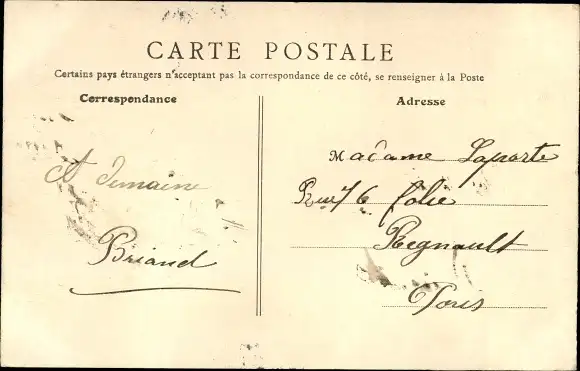 CARTE POSTALE
Certains pays étrangers n'acceptant pas la correspondance de ce côté, se renseigner à la Poste
Correspondance
Demaine
Briand
Adresse
Madame Laporte
76 folie
Regnault
Paris